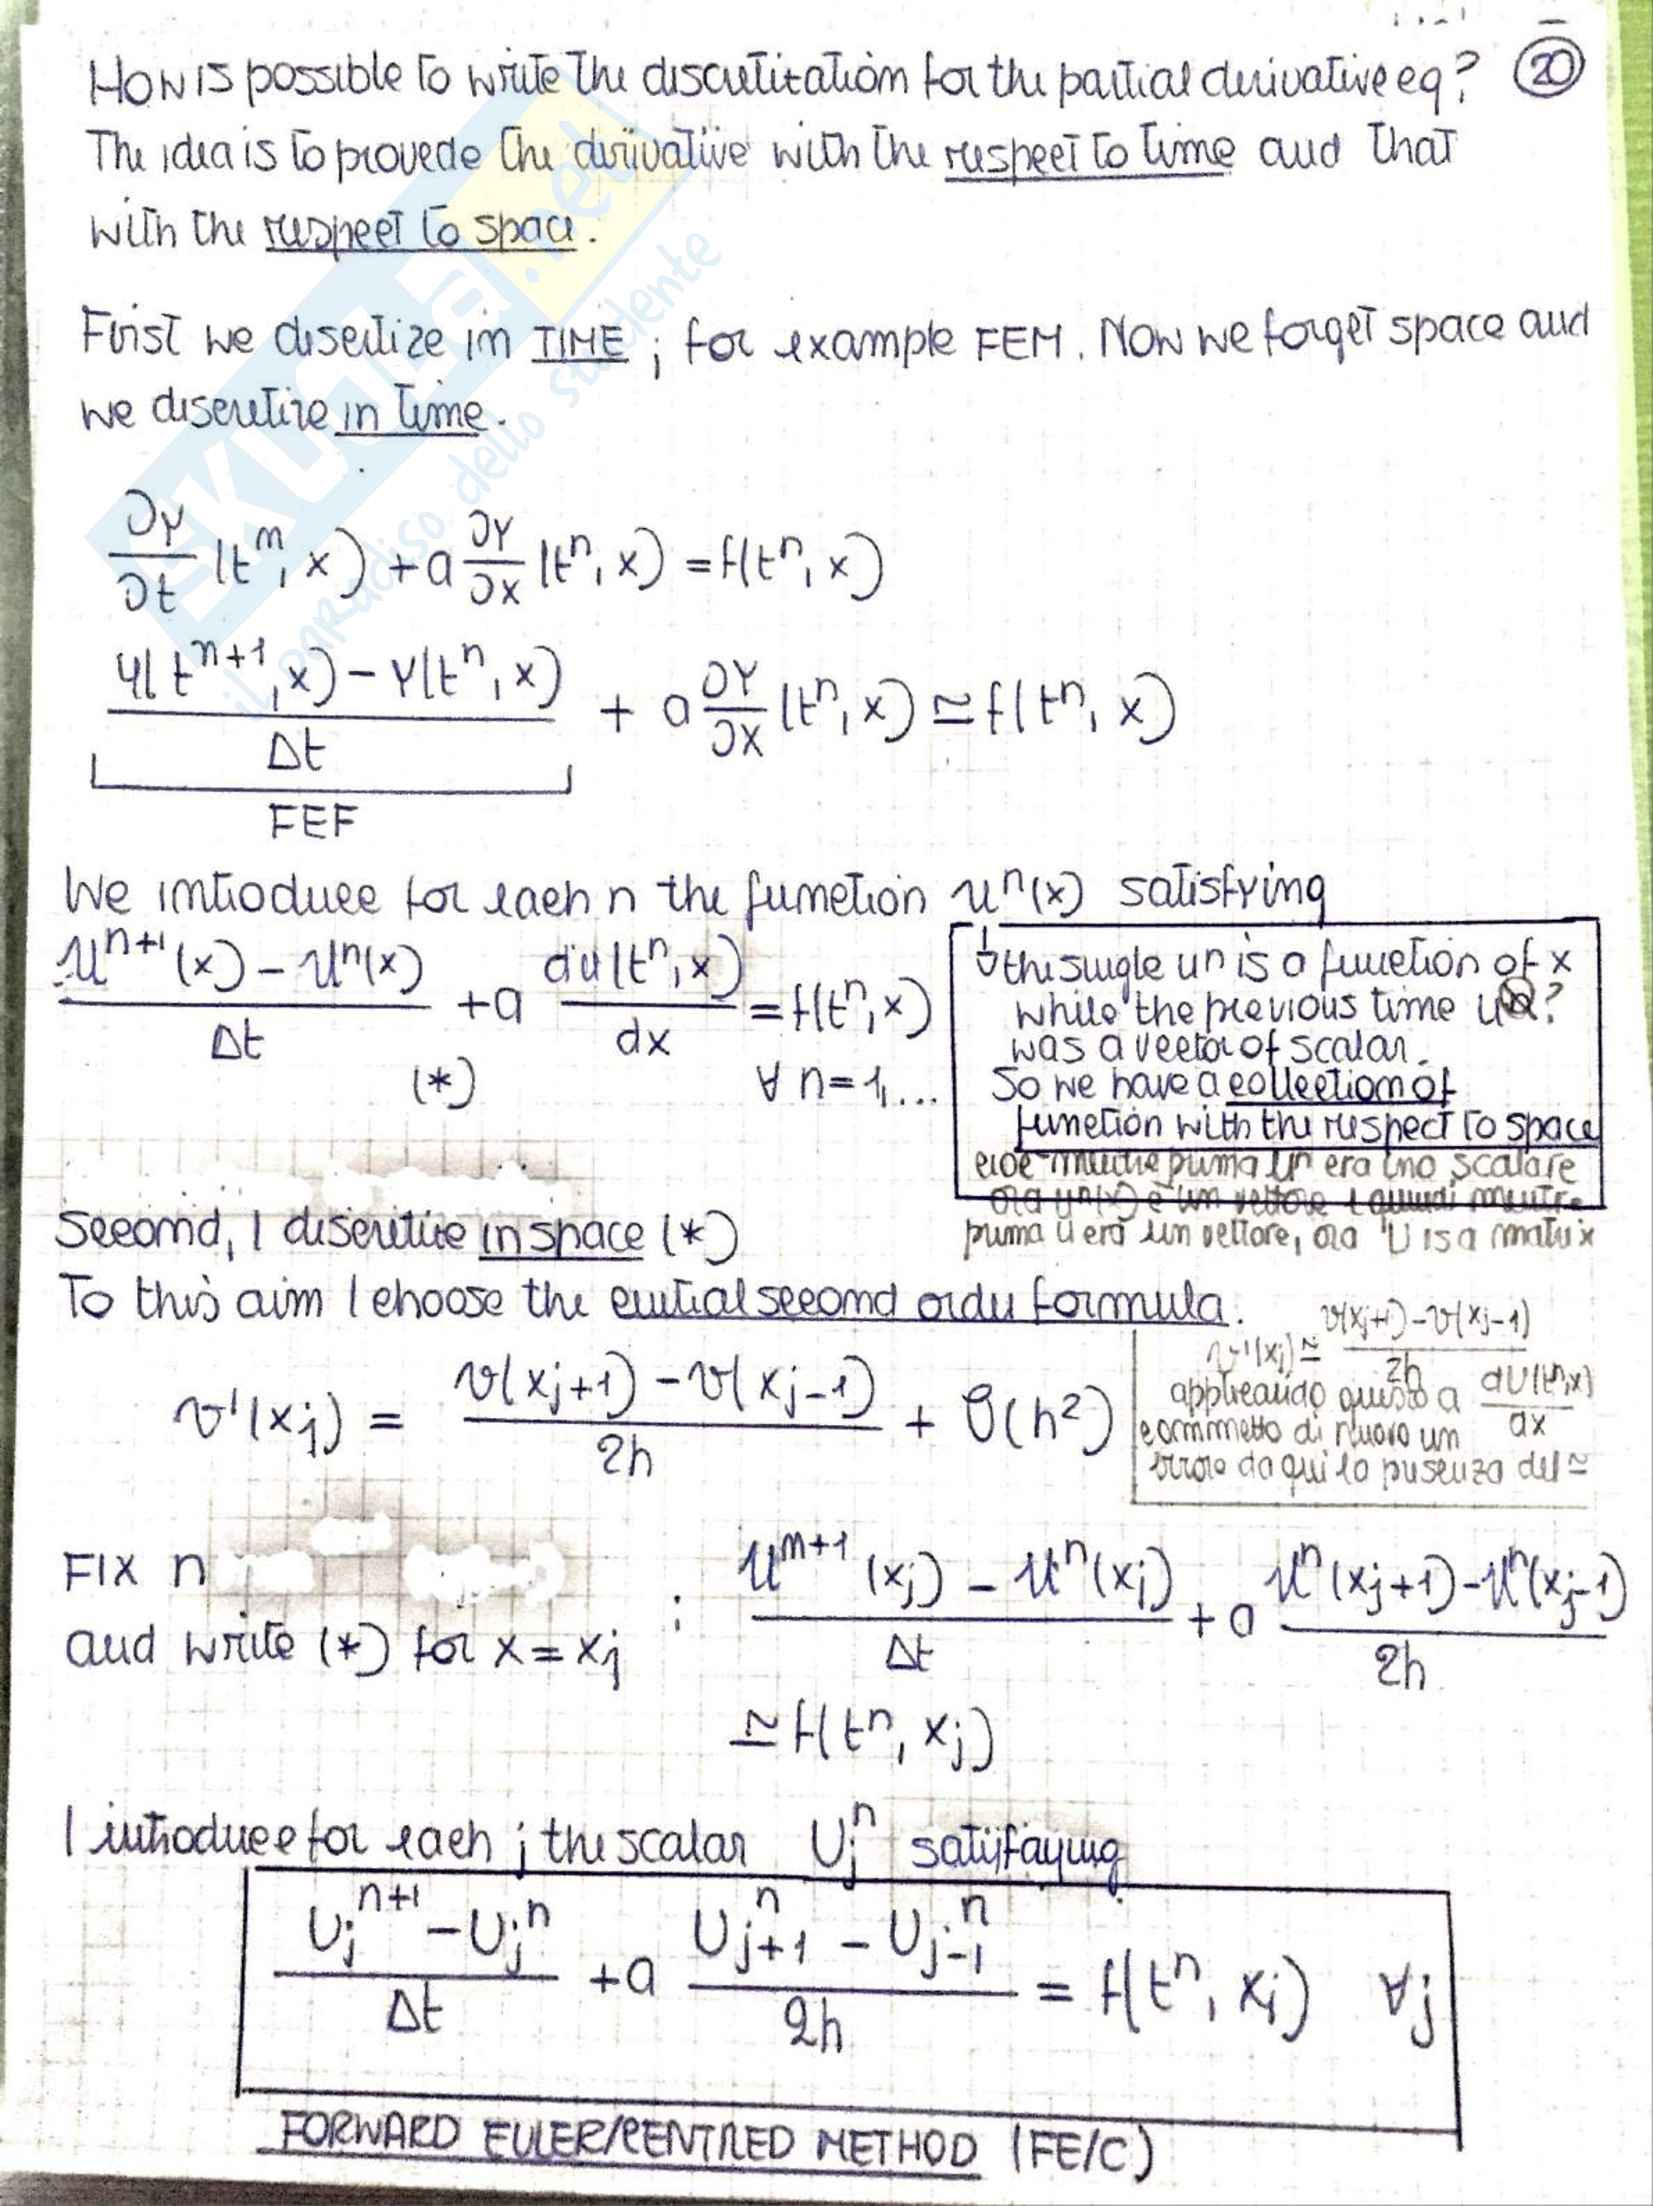 20
How is possible to write the discretization for the partial derivative eq?
The idea is to provede the derivative with the respect to time and that
with the respect to space.
First we discretize in TIME ; for example FEM. Now we forget space and
we discretize in time.
∂y/∂t (tⁿ, x) + a ∂y/∂x (tⁿ, x) = f(tⁿ, x)
(y(tⁿ⁺¹, x) - y(tⁿ, x))/Δt + a ∂y/∂x (tⁿ, x) ≃ f(tⁿ, x)
FEF
We introduce for each n the function uⁿ(x) satisfying
(uⁿ⁺¹(x) - uⁿ(x))/Δt + a du(tⁿ, x)/dx = f(tⁿ, x)
(*) ∀ n = 1, ...
the single uⁿ is a function of x
while the previous time u ?
was a vector of scalar.
So we have a collection of
function with the respect to space
cioè mentre prima uⁿ era uno scalare
ora uⁿ(x) è un vettore e quindi mentre
prima u era un vettore, ora U is a matrix
Second, I discretize in space (*)
To this aim I choose the central second order formula.
v'(xj) = (v(xj+1) - v(xj-1))/2h + O(h²)
v'(xj) ≃ (v(xj+1) - v(xj-1))/2h
applicando questo a dU(tⁿ,x)/dx
commetto di nuovo un
errore da qui la presenza del ≃
FIX n
and write (*) for x = xj : (uⁿ⁺¹(xj) - uⁿ(xj))/Δt + a (uⁿ(xj+1) - uⁿ(xj-1))/2h
≃ f(tⁿ, xj)
I introduce for each j the scalar Ujⁿ satisfaying
(Ujⁿ⁺¹ - Ujⁿ)/Δt + a (Uj+1ⁿ - Uj-1ⁿ)/2h = f(tⁿ, xj) ∀j
FORWARD EULER/CENTRED METHOD (FE/C)
SKUOLa.net
il paradiso dello studente